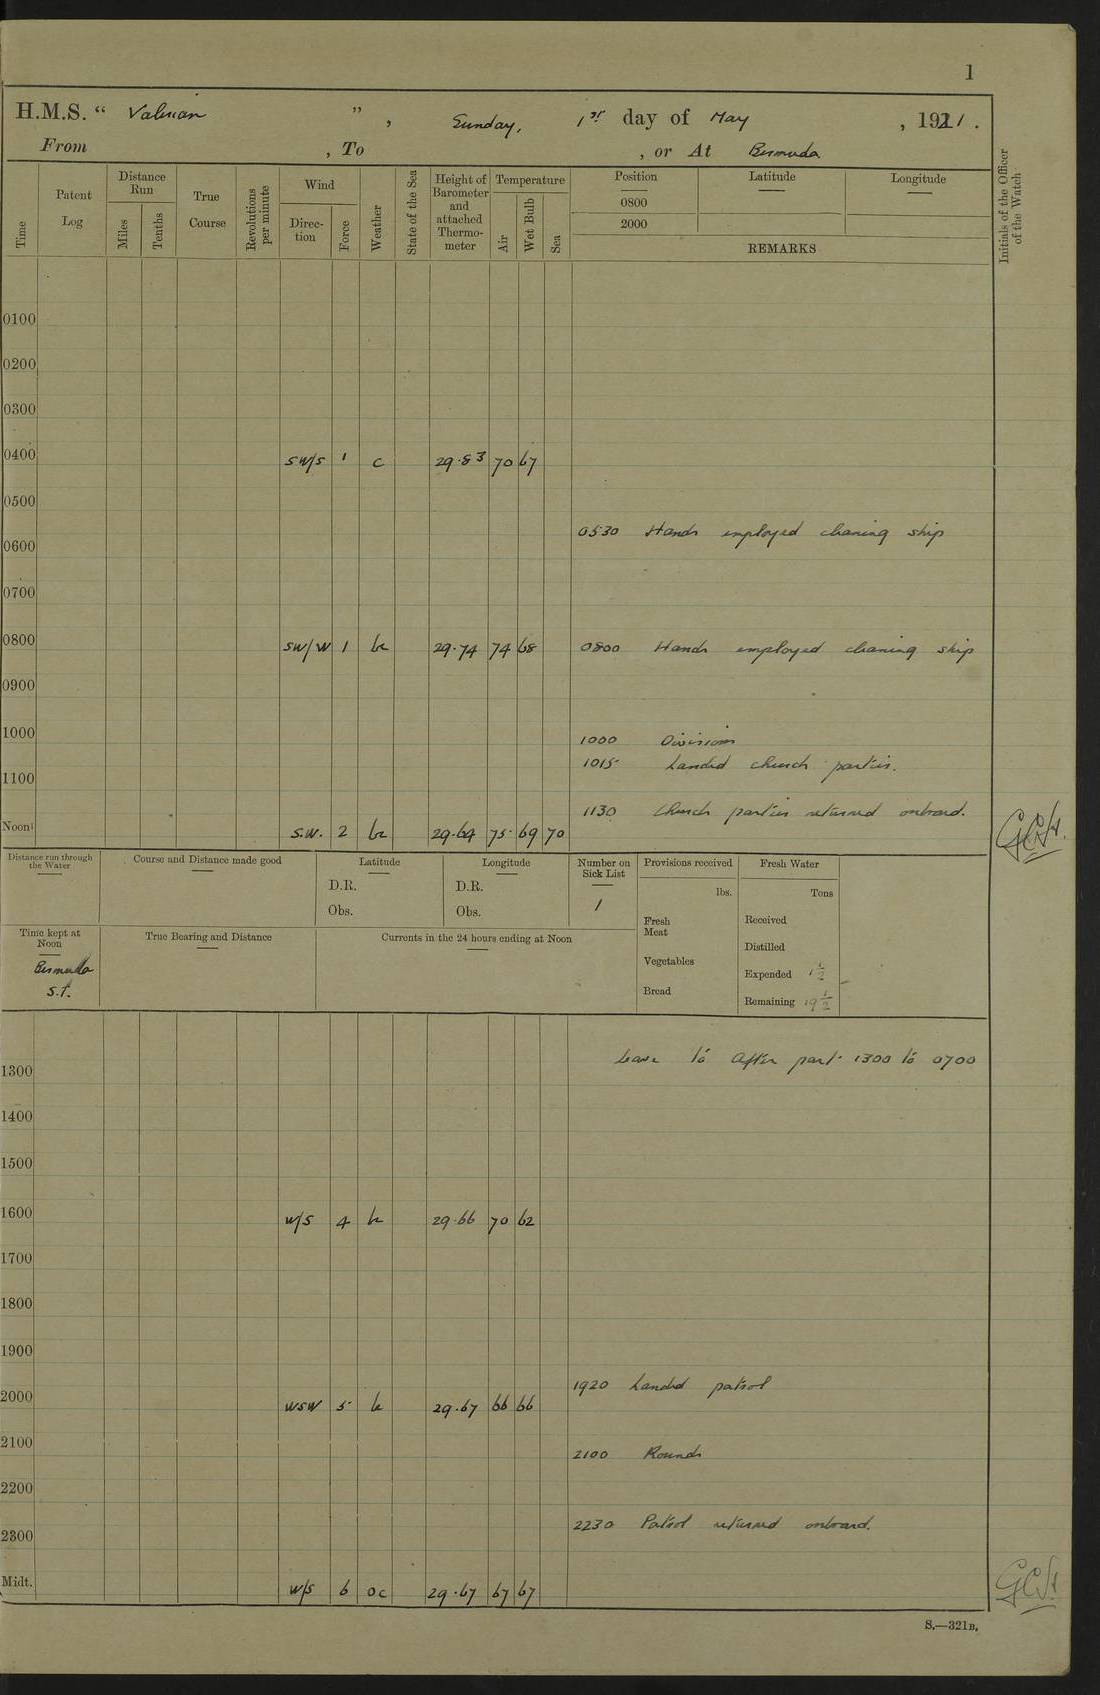 1
H.M.S. “ Valerian ” , Sunday, 1st day of May , 1921 .
From , To , or At Bermuda
Time
Patent Log
Distance Run
Miles
Tenths
True Course
Revolutions per minute
Wind
Direction
Force
Weather
State of the Sea
Height of Barometer and attached Thermometer
Temperature
Air
Wet Bulb
Sea
Position Latitude Longitude
0800
2000
REMARKS
Initials of the Officer of the Watch
0100
0200
0300
0400 SW/S 1 c 29·83 70 67
0500
0530 Hands employed cleaning ship
0600
0700
0800 SW/W 1 bc 29·74 74 68 0800 Hands employed cleaning ship
0900
1000 1000 Divisions
1015 Landed church parties.
1100
1130 Church parties returned onboard.
Noon S.W. 2 bc 29·64 75 69 70 GCH
Distance run through the Water
Course and Distance made good
Latitude
D.R.
Obs.
Longitude
D.R.
Obs.
Number on Sick List
1
Provisions received
lbs.
Fresh Meat
Vegetables
Bread
Fresh Water
Tons
Received
Distilled
Expended 1½
Remaining 19½
Time kept at Noon
Bermuda S.T.
True Bearing and Distance
Currents in the 24 hours ending at Noon
Leave to After part 1300 to 0700
1300
1400
1500
1600 W/S 4 bc 29·66 70 62
1700
1800
1900
1920 Landed patrol
2000 WSW 5 bc 29·67 66 66
2100
2100 Rounds
2200
2230 Patrol returned onboard.
2300
Midt. W/S 6 oc 29·67 67 67 GCH
S.—321B.